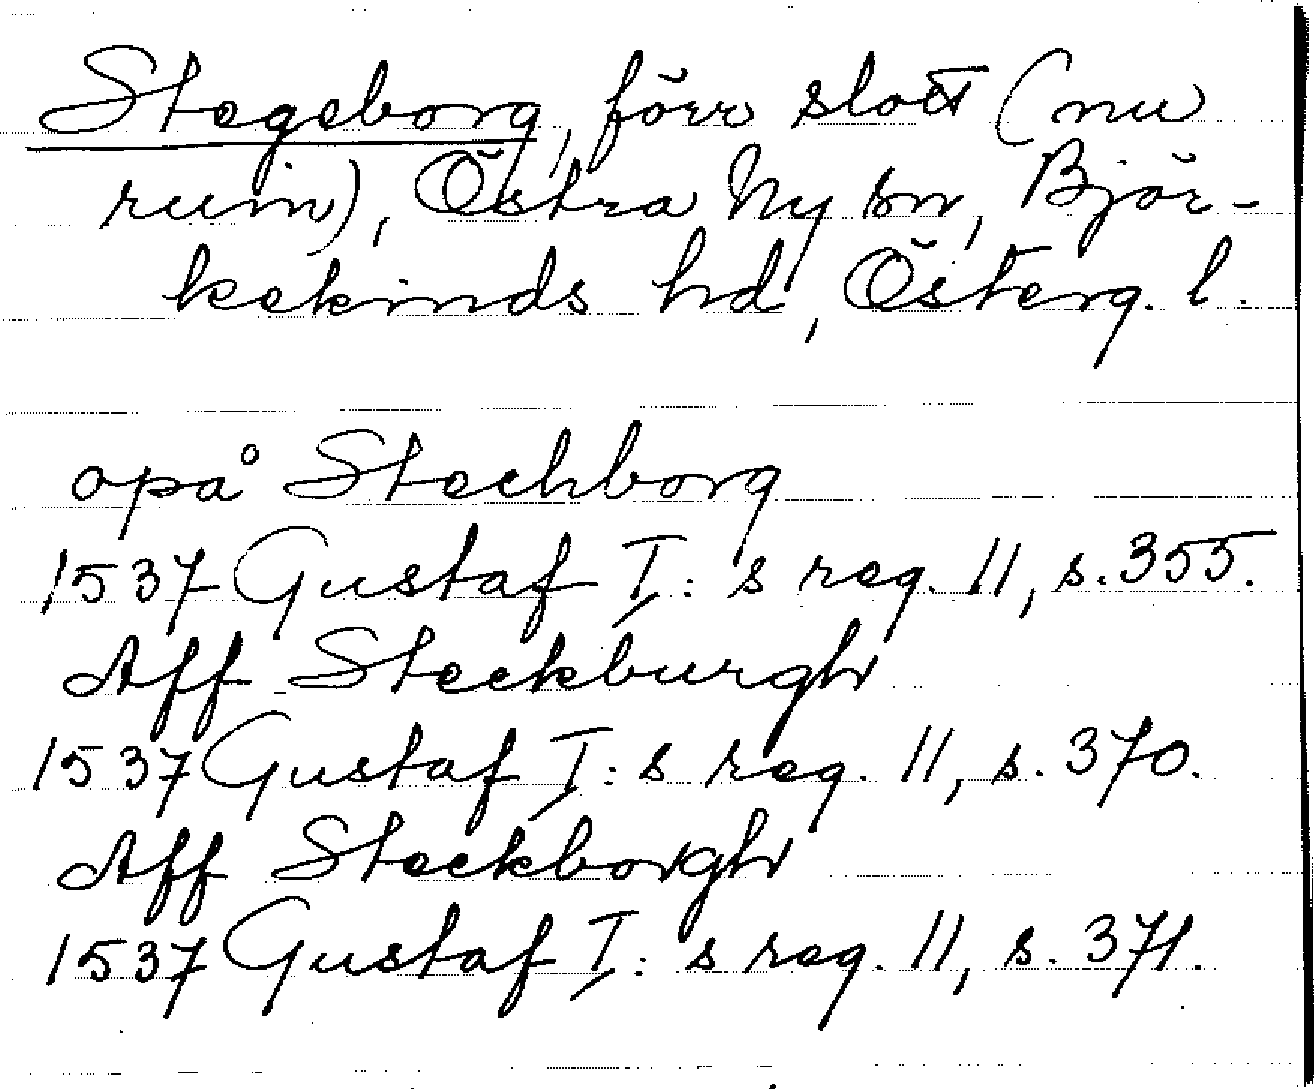 Stegeborg, förr slott (nu
ruin), Östra Ny sn, Björ-
kekinds hd, Österg. l.
opå Stechborg
1537 Gustaf I: s reg. 11, s. 355.
Aff Steckburgh
1537 Gustaf I: s reg. 11, s. 370.
Aff Steckborgh
1537 Gustaf I: s reg. 11, s. 371.